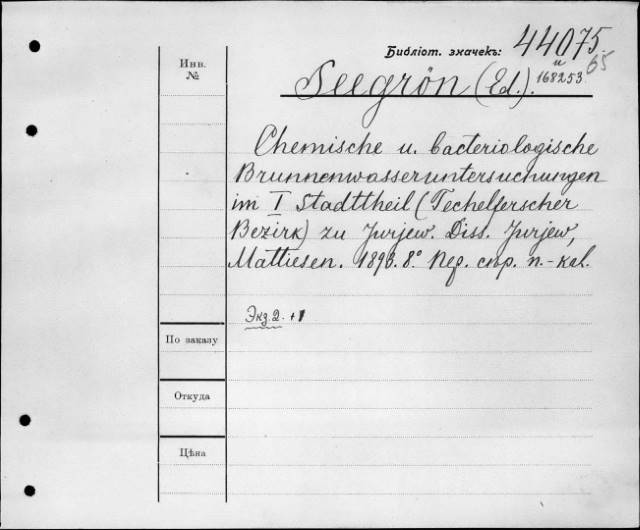 Библіот. значекъ: 44075.
65
и
168253
Инв.
№
Seegrön (Ed.).
Chemische u. bacteriologische
Brunnenwasseruntersuchungen
im I Stadttheil (Techelferscher
Bezirk) zu Jurjew. Diss. Jurjew,
Mattiesen. 1893. 8°
Экз. 2. +1
По заказу
Откуда
Цѣна